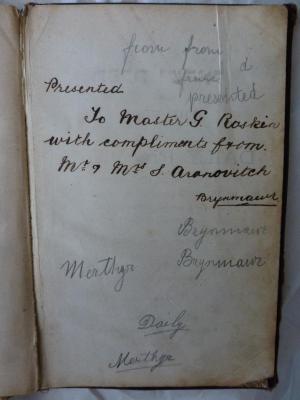 from from
d
from
presented
Presented
To Master G. Raskin
with compliments from.
Mr & Mrs S. Aronovitch
Brynmawr
Brynmawr
Merthyr Brynmawr
Daily
Merthyr